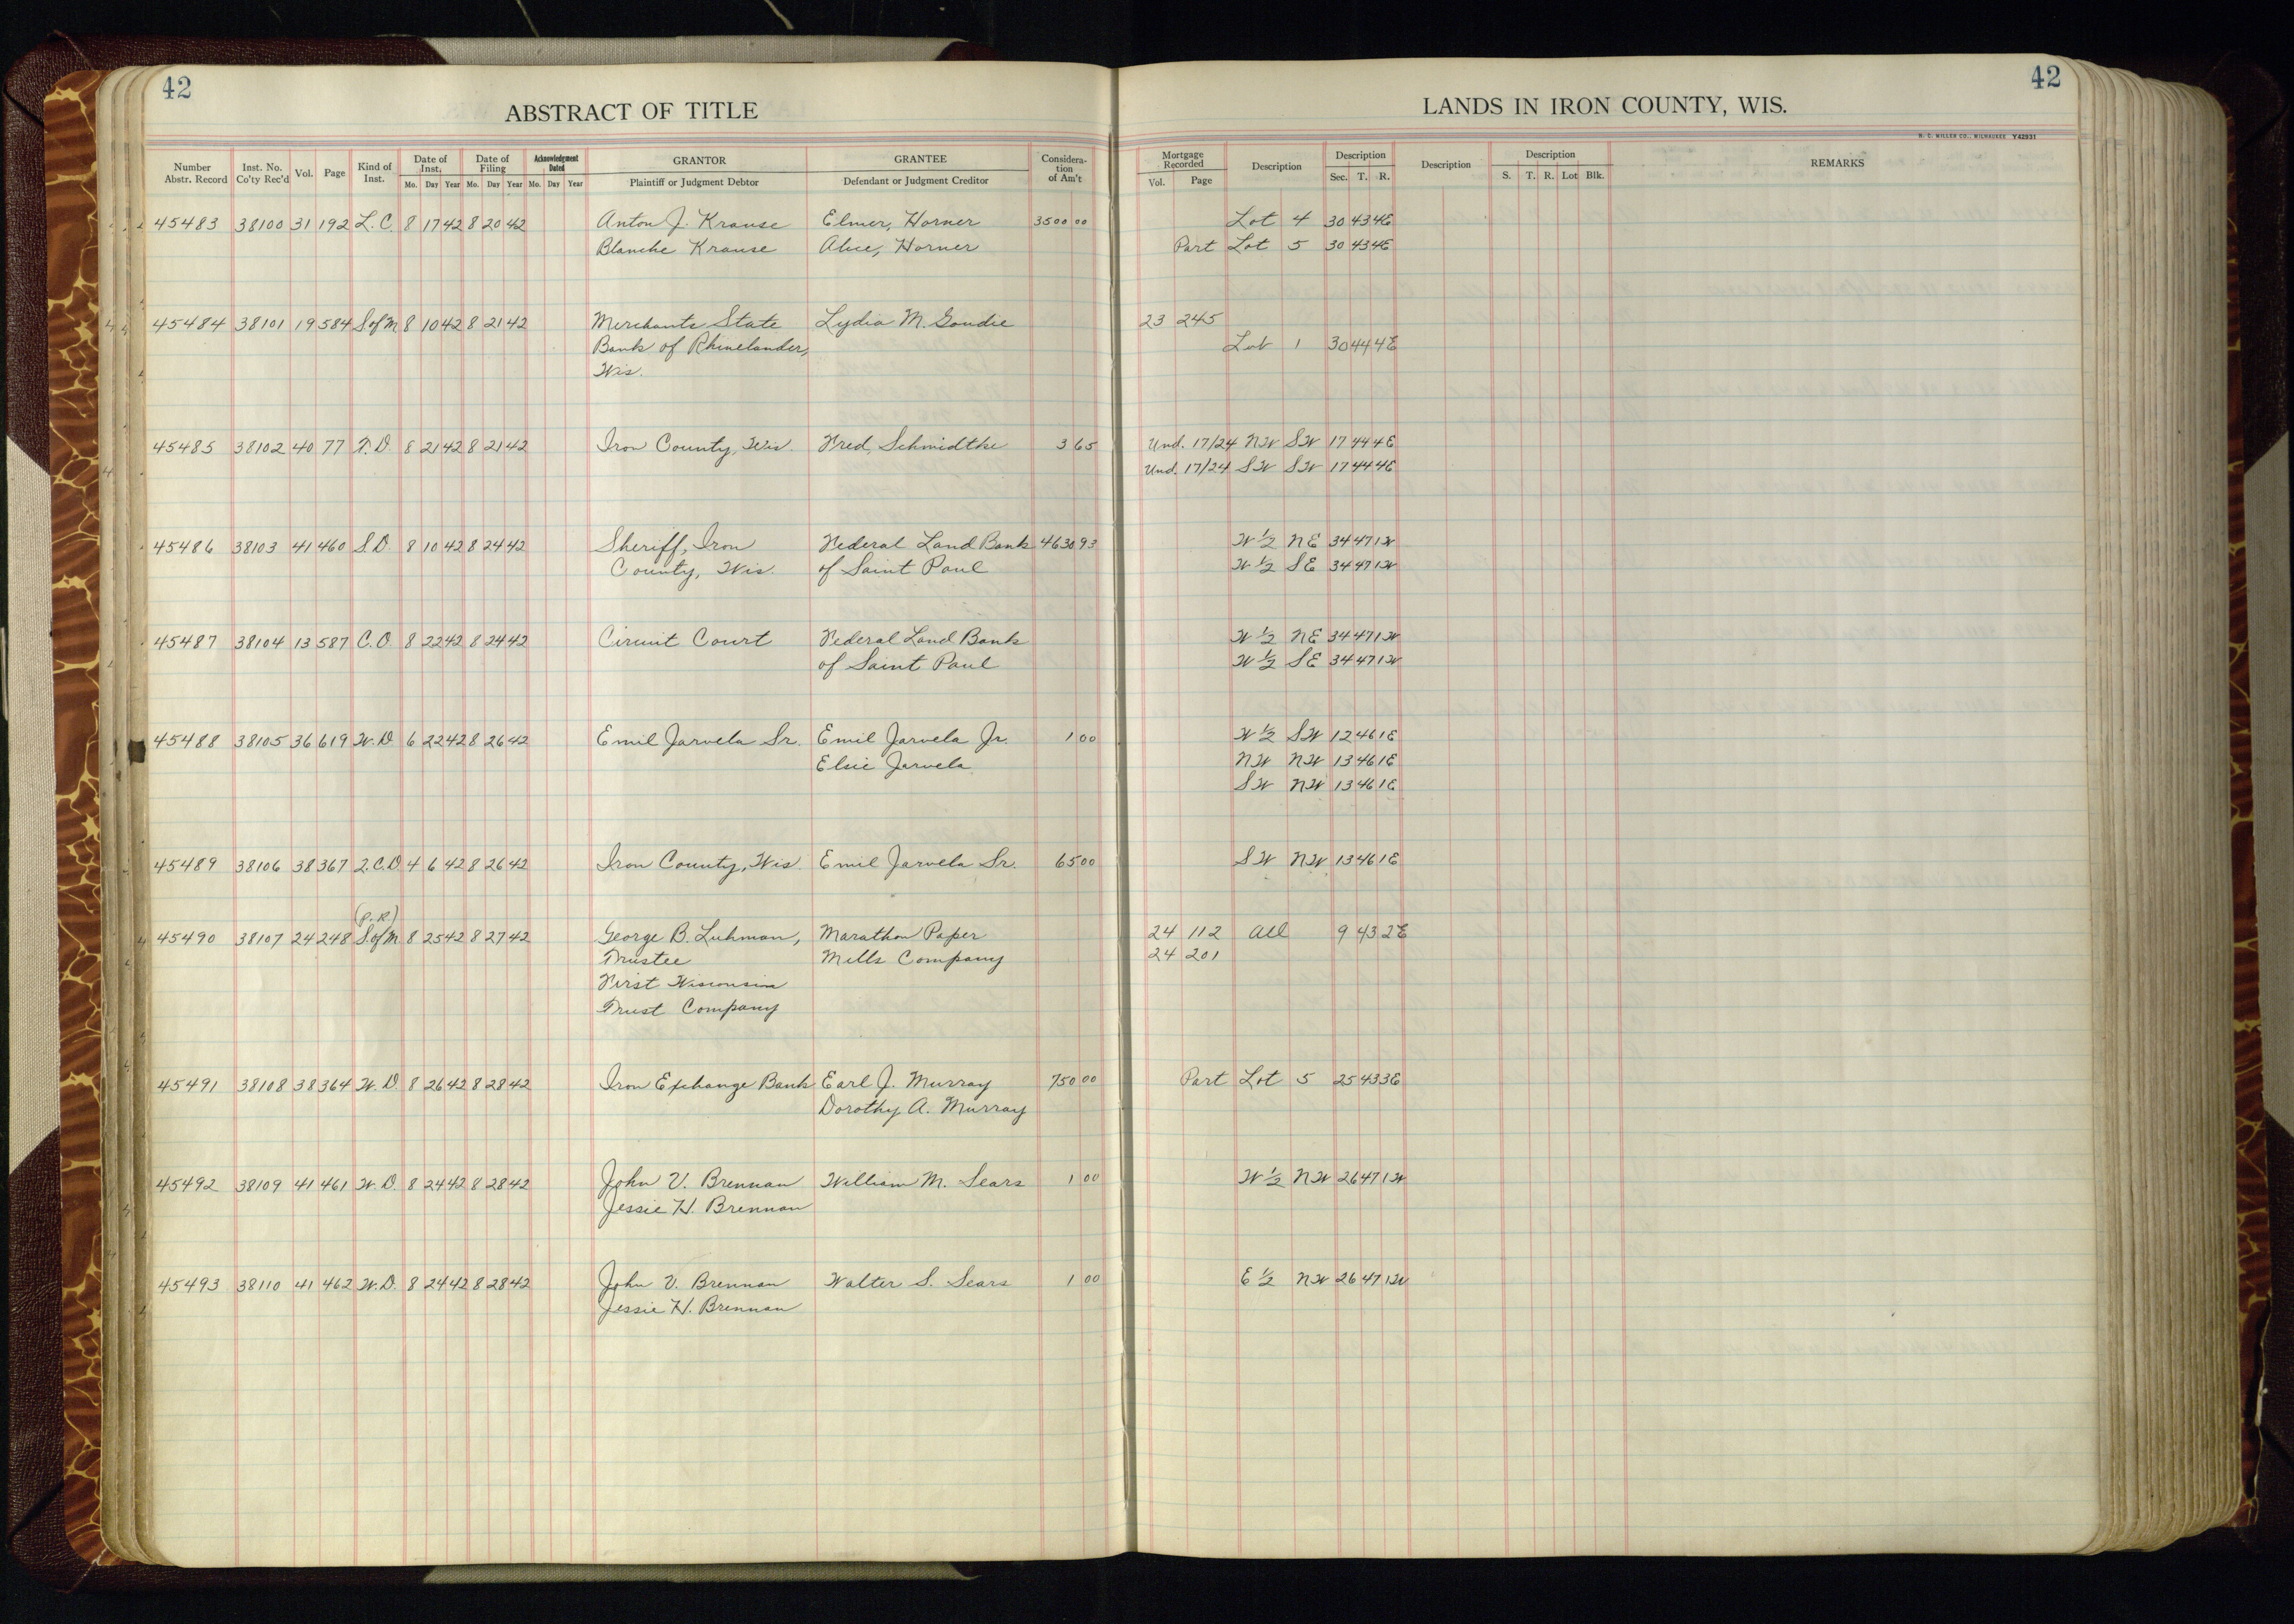 42
ABSTRACT OF TITLE
LANDS IN IRON COUNTY, WIS.
42
H. C. MILLER CO., MILWAUKEE Y42931
Number Abstr. Record | Inst. No. Co'ty Rec'd | Vol. | Page | Kind of Inst. | Date of Inst. Mo. Day Year | Date of Filing Mo. Day Year | Acknowledgment Dated Mo. Day Year | GRANTOR Plaintiff or Judgment Debtor | GRANTEE Defendant or Judgment Creditor | Considera-tion of Am't | Mortgage Recorded Vol. Page | Description | Description Sec. T. R. | Description | Description S. T. R. Lot Blk. | REMARKS
45483 38100 31 192 L.C. 8 17 42 8 20 42 Anton J. Krause Elmer, Horner 3500 00 Lot 4 30 43 4E
Blanche Krause Alice, Horner Part Lot 5 30 43 4E
45484 38101 19 584 S of M 8 10 42 8 21 42 Merchants State Lydia M. Goudie 23 245
Bank of Rhinelander, Lot 1 30 44 4E
Wis.
45485 38102 40 77 T.D. 8 21 42 8 21 42 Iron County, Wis. Fred, Schmidtke 3 65 Und. 17/24 NW SW 17 44 4E
Und. 17/24 SW SW 17 44 4E
45486 38103 41 460 S.D. 8 10 42 8 24 42 Sheriff, Iron Federal Land Bank 4630 93 W 1/2 NE 34 47 1W
County, Wis. of Saint Paul W 1/2 SE 34 47 1W
45487 38104 13 587 C.O. 8 22 42 8 24 42 Circuit Court Federal Land Bank W 1/2 NE 34 47 1W
of Saint Paul W 1/2 SE 34 47 1W
45488 38105 36 619 W.D 6 22 42 8 26 42 Emil Jarvela Sr. Emil Jarvela Jr. 1 00 W 1/2 SW 12 46 1E
Elsie Jarvela NW NW 13 46 1E
SW NW 13 46 1E
45489 38106 38 367 Q.C.D 4 6 42 8 26 42 Iron County, Wis. Emil Jarvela Sr. 65 00 SW NW 13 46 1E
(P.R.)
45490 38107 24 248 S. of M. 8 25 42 8 27 42 George B. Luhman, Marathon Paper 24 112 All 9 43 2E
Trustee Mills Company 24 201
First Wisconsin
Trust Company
45491 38108 38 364 W.D. 8 26 42 8 28 42 Iron Exchange Bank Earl J. Murray 750 00 Part Lot 5 25 43 3E
Dorothy A. Murray
45492 38109 41 461 W.D. 8 24 42 8 28 42 John V. Brennan William M. Sears 1 00 W 1/2 NW 26 47 1W
Jessie H. Brennan
45493 38110 41 462 W.D. 8 24 42 8 28 42 John V. Brennan Walter S. Sears 1 00 E 1/2 NW 26 47 1W
Jessie H. Brennan